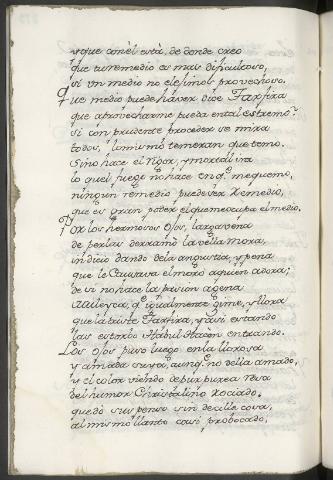 y que con èl està, de donde creo
que tu remedio es mas dificultoso,
si un medio no elejimos provechoso.
Que medio puede haver dice Tarfira
que aprovecharme pueda en tal estremo?
si con prudente proceder se mira
todos, lo mismo temeran que temo.
Si no hace el rigor, y mortal ira
lo que el fuego no hace en q.e me quemo,
ningun remedio puede ser remedio,
que es gran poder el que me ocupa el medio.
Por los hermosos ojos, larga vena
de perlas derramò la vella mora,
indicio dando de la angustia, y pena
que le causava el moro a quien adora;
de si no hace la pasion agena
q.e igualmente gime, y llora
que la triste Tarfira, y asi estando
las estorbò Abdul Hacèn entrando.
Los ojos puso luego en la llorosa
y amada suya, aunq.e no della amado,
y el color viendo de purpurea rosa
del humor christalino rociado.
quedò suspenso sin decille cosa,
al mismo llanto casi probocado,